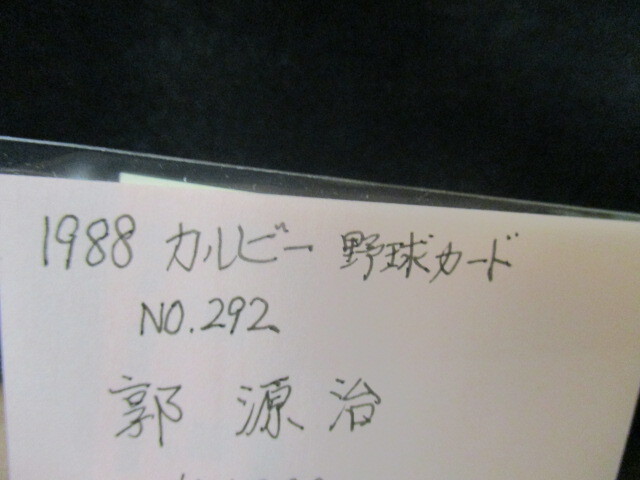 1988 カルビー 野球カード
NO.292
郭 源治